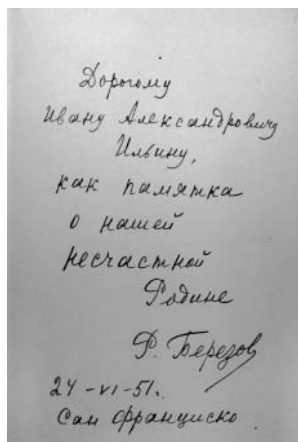 Дорогому
Ивану Александровичу
Ильину,
как памятка
о нашей
несчастной
Родине
Р. Березов
24-VI-51.
Сан Франциско.